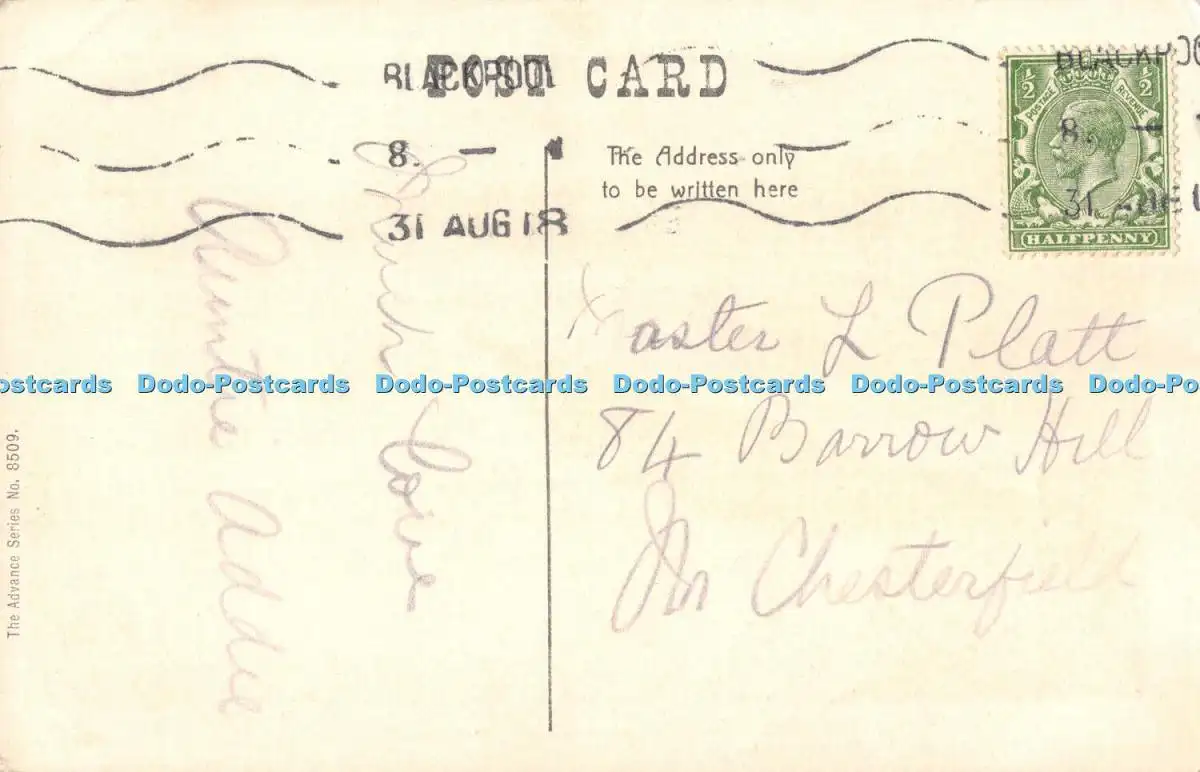 POST CARD
BLACKPOOL
8. —
31 AUG 18
BLACKPOO
8. —
31
The Address only
to be written here
1/2 1/2
POSTAGE REVENUE
HALFPENNY
Much Love
Auntie Addie
Master L Platt
84 Barrow Hill
Nr Chesterfield
The Advance Series No. 8509.
ostcards Dodo-Postcards Dodo-Postcards Dodo-Postcards Dodo-Postcards Dodo-Po